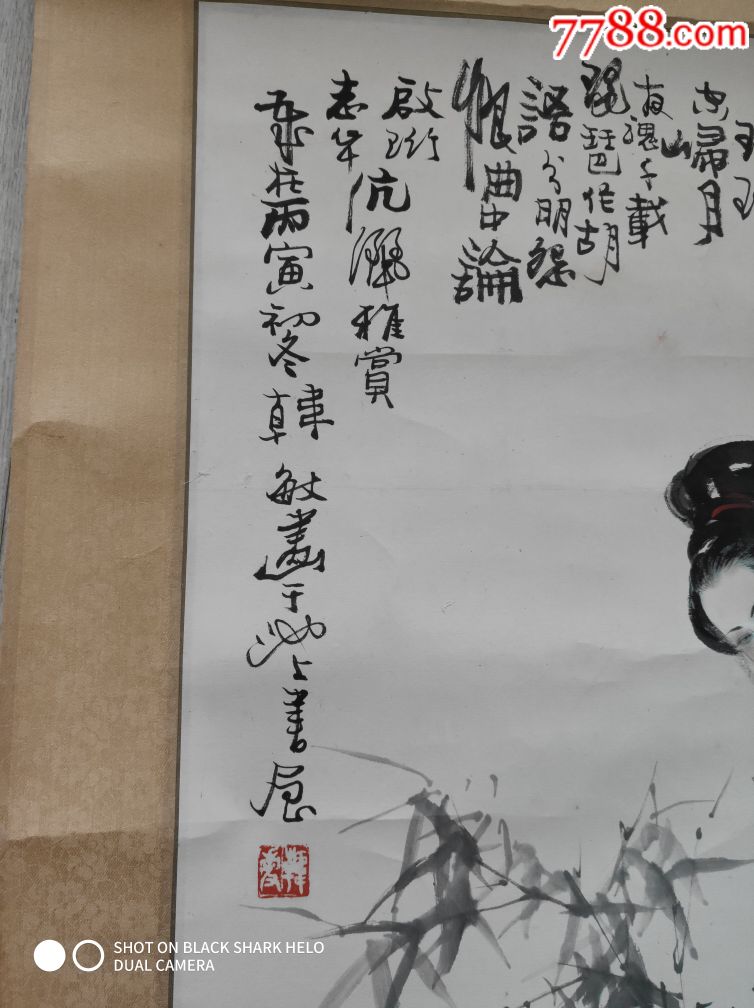 7788.com
空歸月
夜魂千載
琵琶作胡
語分明怨
恨曲中論
啟珩
志华伉儷雅賞
歲在丙寅初冬韓敏畫于池上書屋
SHOT ON BLACK SHARK HELO
DUAL CAMERA